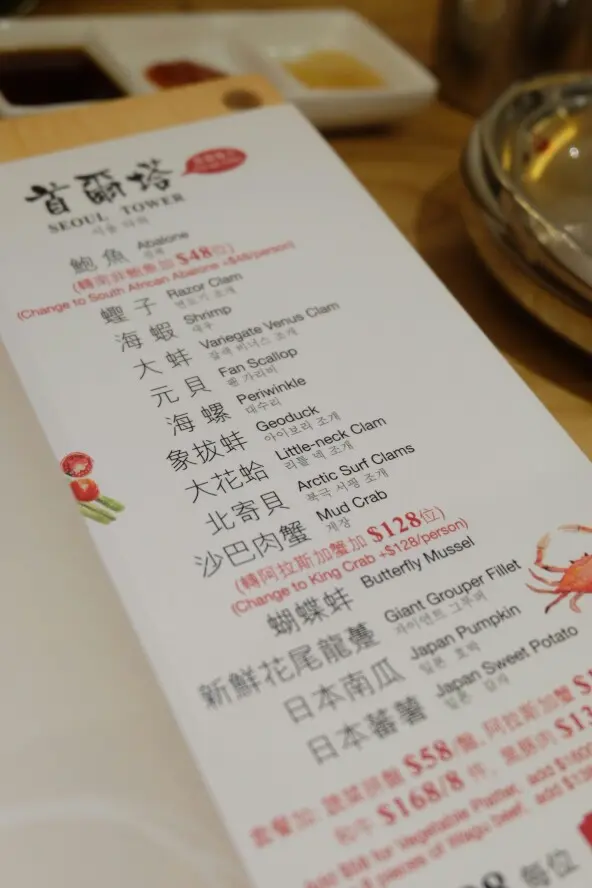 首爾塔
SEOUL TOWER
서울 타워
鮑魚 Abalone
전복
(轉南非鮑魚加$48位)
(Change to South African Abalone +$48/person)
蟶子 Razor Clam
맨도기 조개
海蝦 Shrimp
새우
大蚌 Variegate Venus Clam
잡색 비너스 조개
元貝 Fan Scallop
팬 가리비
海螺 Periwinkle
대수리
象拔蚌 Geoduck
아이보리 조개
大花蛤 Little-neck Clam
리틀 넥 조개
北寄貝 Arctic Surf Clams
북극 서핑 조개
沙巴肉蟹 Mud Crab
게장
(轉阿拉斯加蟹加$128位)
(Change to King Crab +$128/person)
蝴蝶蚌 Butterfly Mussel
新鮮花尾龍躉 Giant Grouper Fillet
자이언트 그루퍼
日本南瓜 Japan Pumpkin
일본 호박
日本蕃薯 Japan Sweet Potato
일본 감자
套餐加: 蔬菜拼盤$58/盤, 阿拉斯加蟹
和牛$168/8件,
add $58 for Vegetable Platter, add
8 pieces of Wagu beef, add
每位